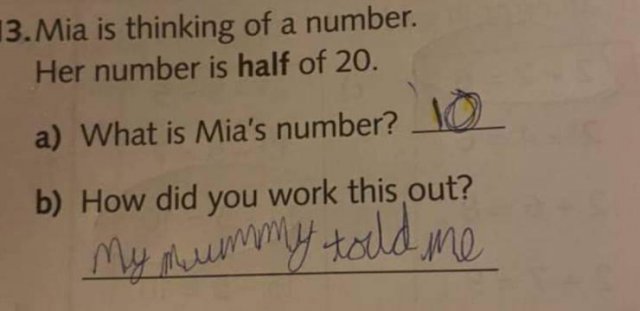 13. Mia is thinking of a number.
Her number is half of 20.
a) What is Mia's number? 10
b) How did you work this out?
My mummy told me